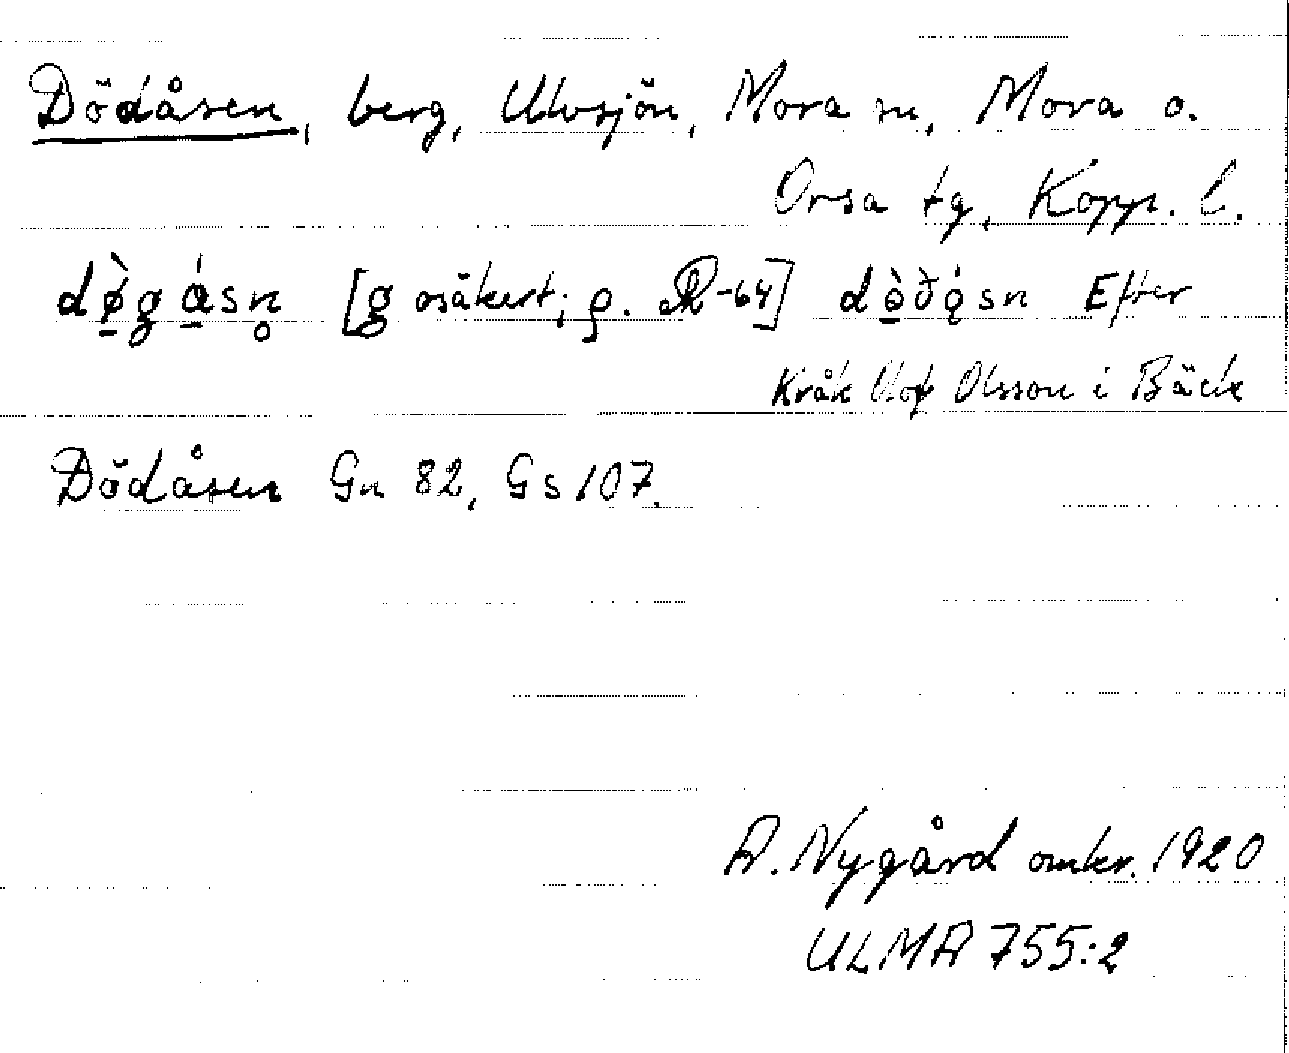 Dödåsen, berg, Ulvsjön, Mora sn, Mora o.
Orsa tg, Kopp. l.
dø̠̀gá̠sn̥ [g osäkert; ρ. -64] dò̠ðǫ́sn Efter
Kråk Olof Olsson i Bäck
Dödåsen Gn 82, Gs 107.
A. Nygård omkr. 1920
ULMA 755:2